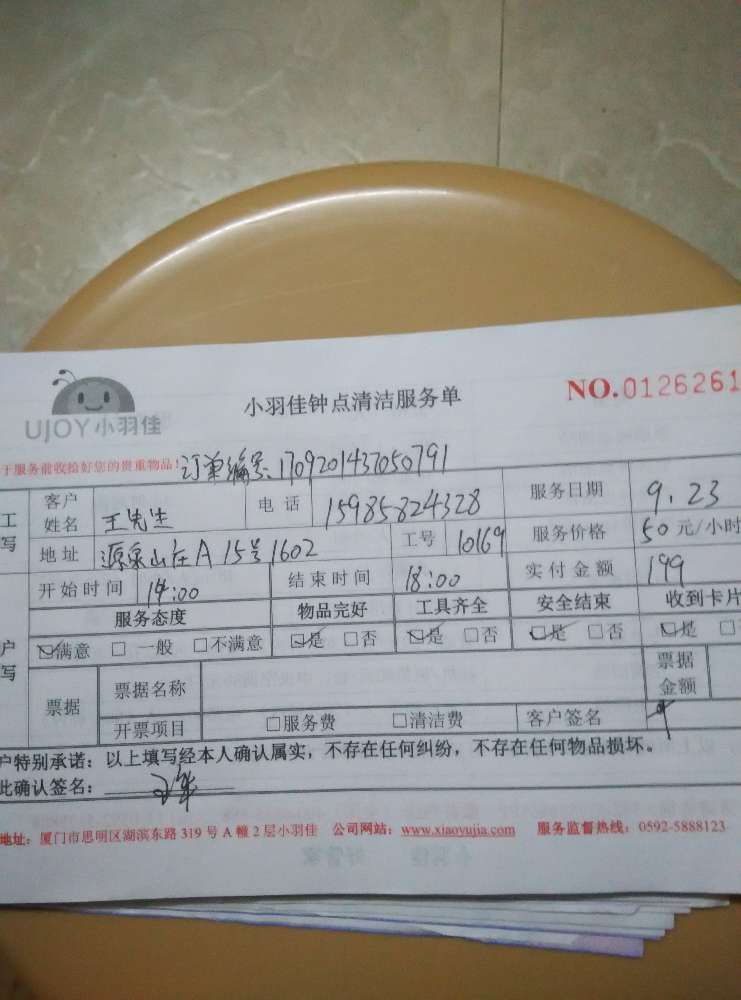 UJOY小羽佳
小羽佳钟点清洁服务单
NO.0126261
于服务前收拾好您的贵重物品!订单编号:1709201437050791
工
写
客户姓名 王先生 电话 15985824328 服务日期 9.23
地址 源泉山庄A15号1602 工号 10169 服务价格 50元/小时
开始时间 14:00 结束时间 18:00 实付金额 199
户
写
服务态度 物品完好 工具齐全 安全结束 收到卡片
☑满意 □一般 □不满意 ☑是 □否 ☑是 □否 ☑是 □否 ☑是 □
票据 票据名称 票据金额
开票项目 □服务费 □清洁费 客户签名
户特别承诺:以上填写经本人确认属实,不存在任何纠纷,不存在任何物品损坏。
此确认签名:
地址:厦门市思明区湖滨东路319号A幢2层小羽佳 公司网站:www.xiaoyujia.com 服务监督热线:0592-5888123